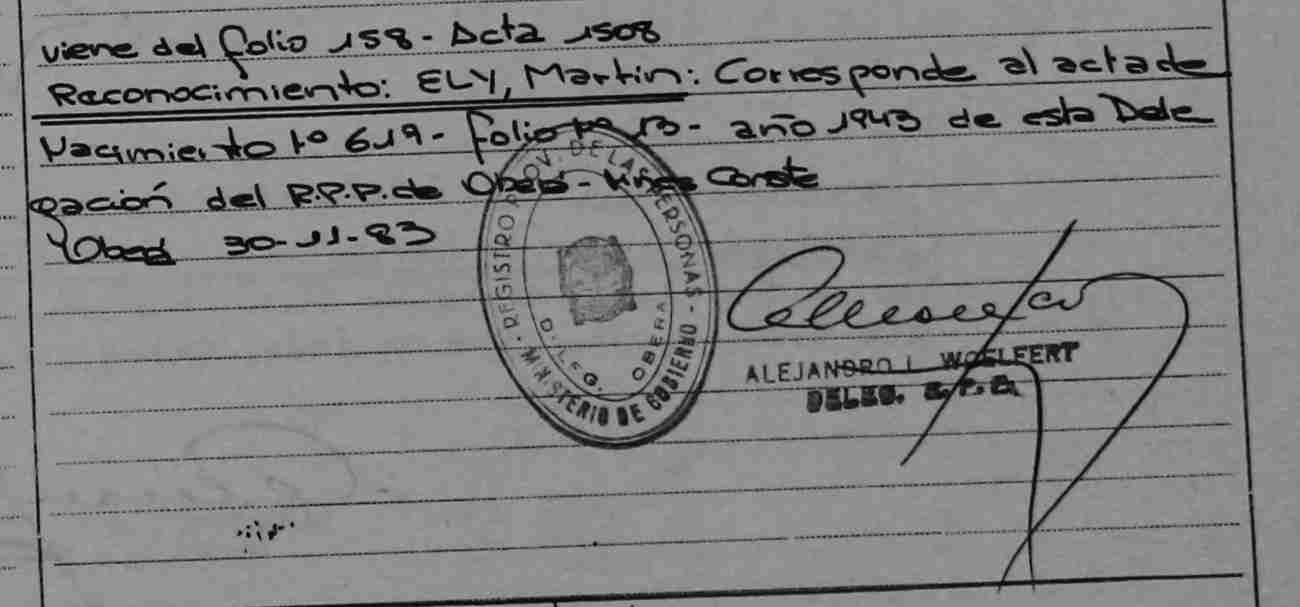 viene del folio 158 - Acta 1508
Reconocimiento: ELY, Martin: Corresponde al acta de
Nacimiento Nº 619 - folio nº 13 - año 1943 de esta Dele
gación del R.P.P. de Oberá - Mnes Conste
Oberá 30-11-83
REGISTRO PROV. DE LAS PERSONAS - MINISTERIO DE GOBIERNO
DELEG. OBERA
ALEJANDRO L. WOELFERT
DELEG.